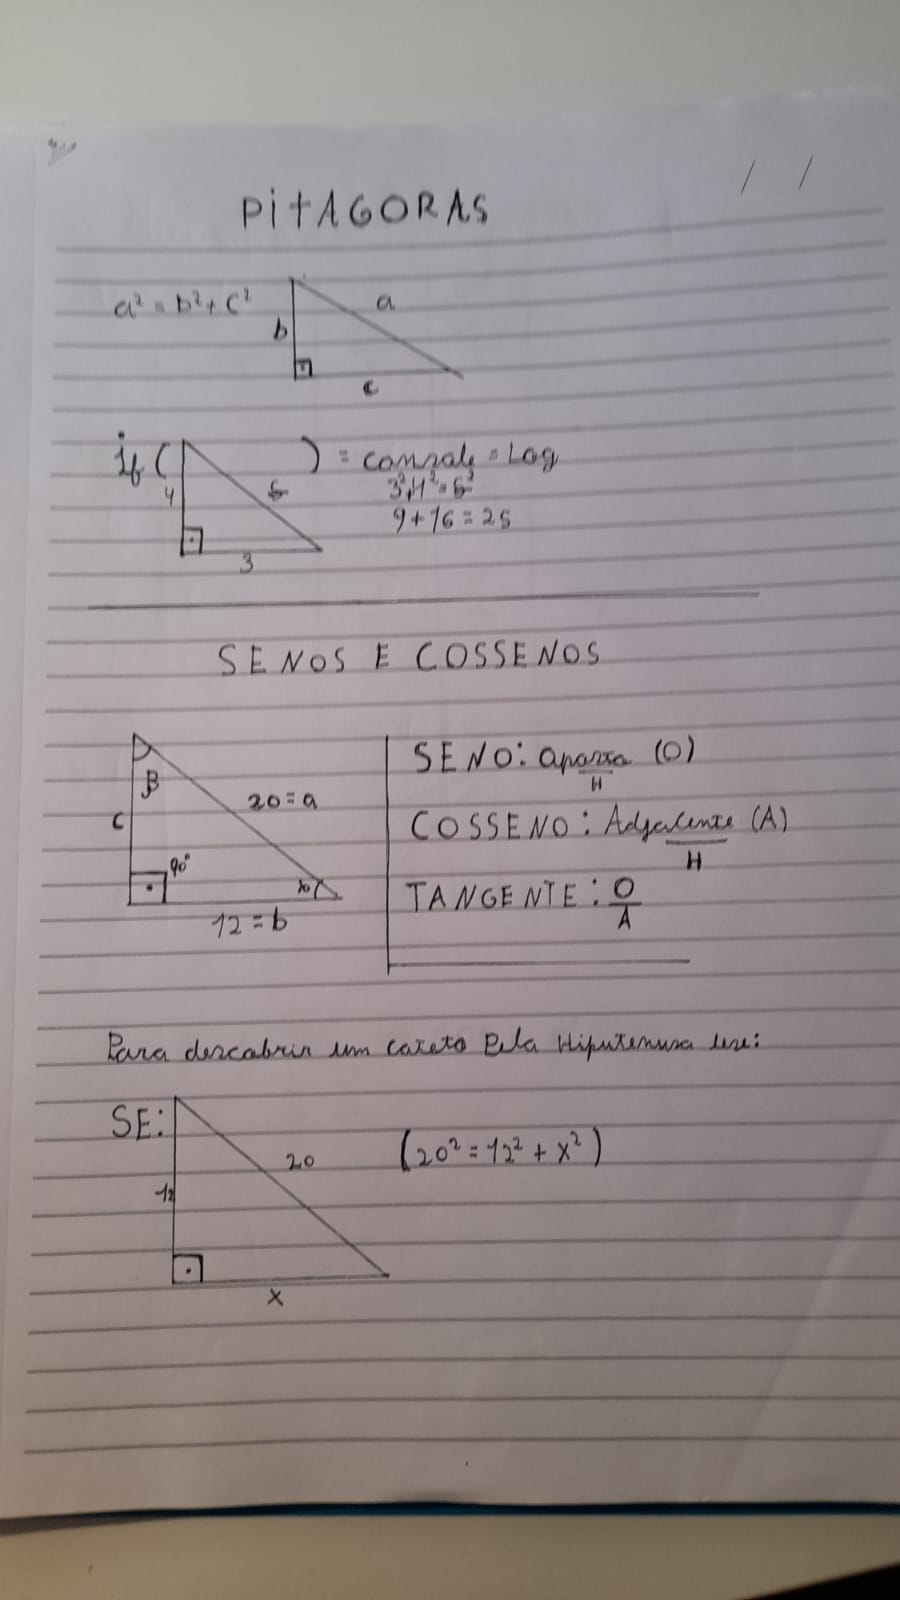 PITAGORAS
a² = b² + c²
a
b
c
if ( ) = console = Log
4
5
3
3²+4²=5²
9+16=25
SENOS E COSSENOS
β
20=a
c
90°
12=b
SENO: oposto (O)
H
COSSENO: Adjacente (A)
H
TANGENTE: O
A
Para descobrir um cateto Pela Hipotenusa use:
SE:
20
12
x
(20² = 12² + x²)